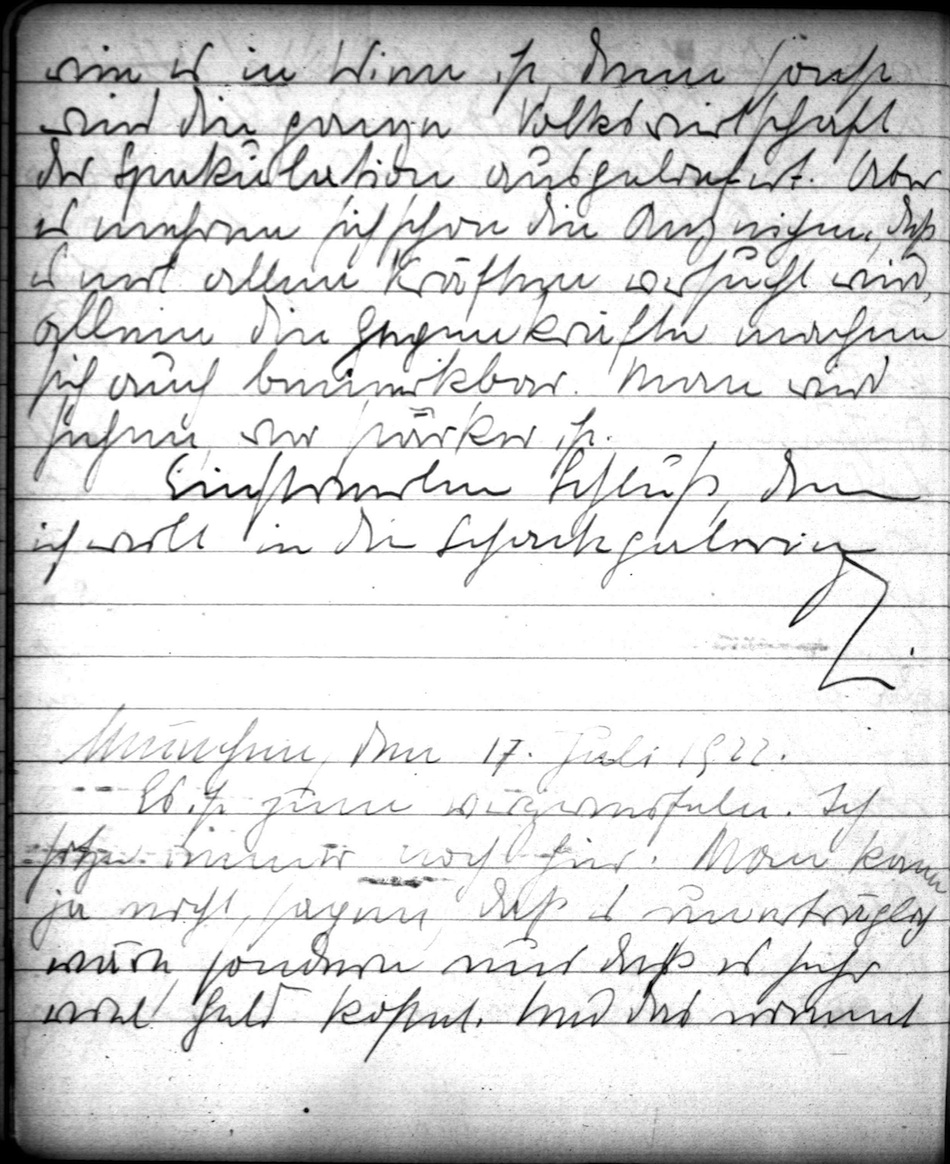 wie es in Wien ist denn sonst
wird die ganze Volkswirtschaft
der Spekulation ausgeliefert. Aber
es mehren sich schon die Anzeichen, daß
es mit allen Kräften versucht wird,
allein die Gegenkräfte machen
sich auch bemerkbar. Man wird
sehen, wer stärker ist.
Einstweilen Schluß, denn
ich will in die Schackgalerie
Z.
München, den 17. Juli 1922.
Es ist zum verzweifeln. Ich
sitze immer noch hier. Man kann
ja nicht sagen, daß es unerträglich
wäre sondern nur daß es sehr
viel Geld kostet. Und das nimmt